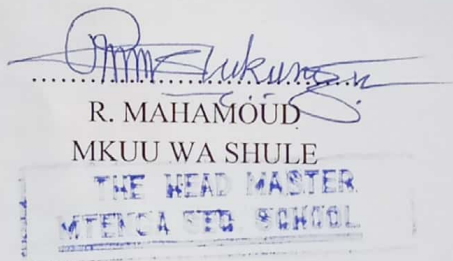 R. MAHAMOUD
MKUU WA SHULE
THE HEAD MASTER
MTENGA SEC. SCHOOL